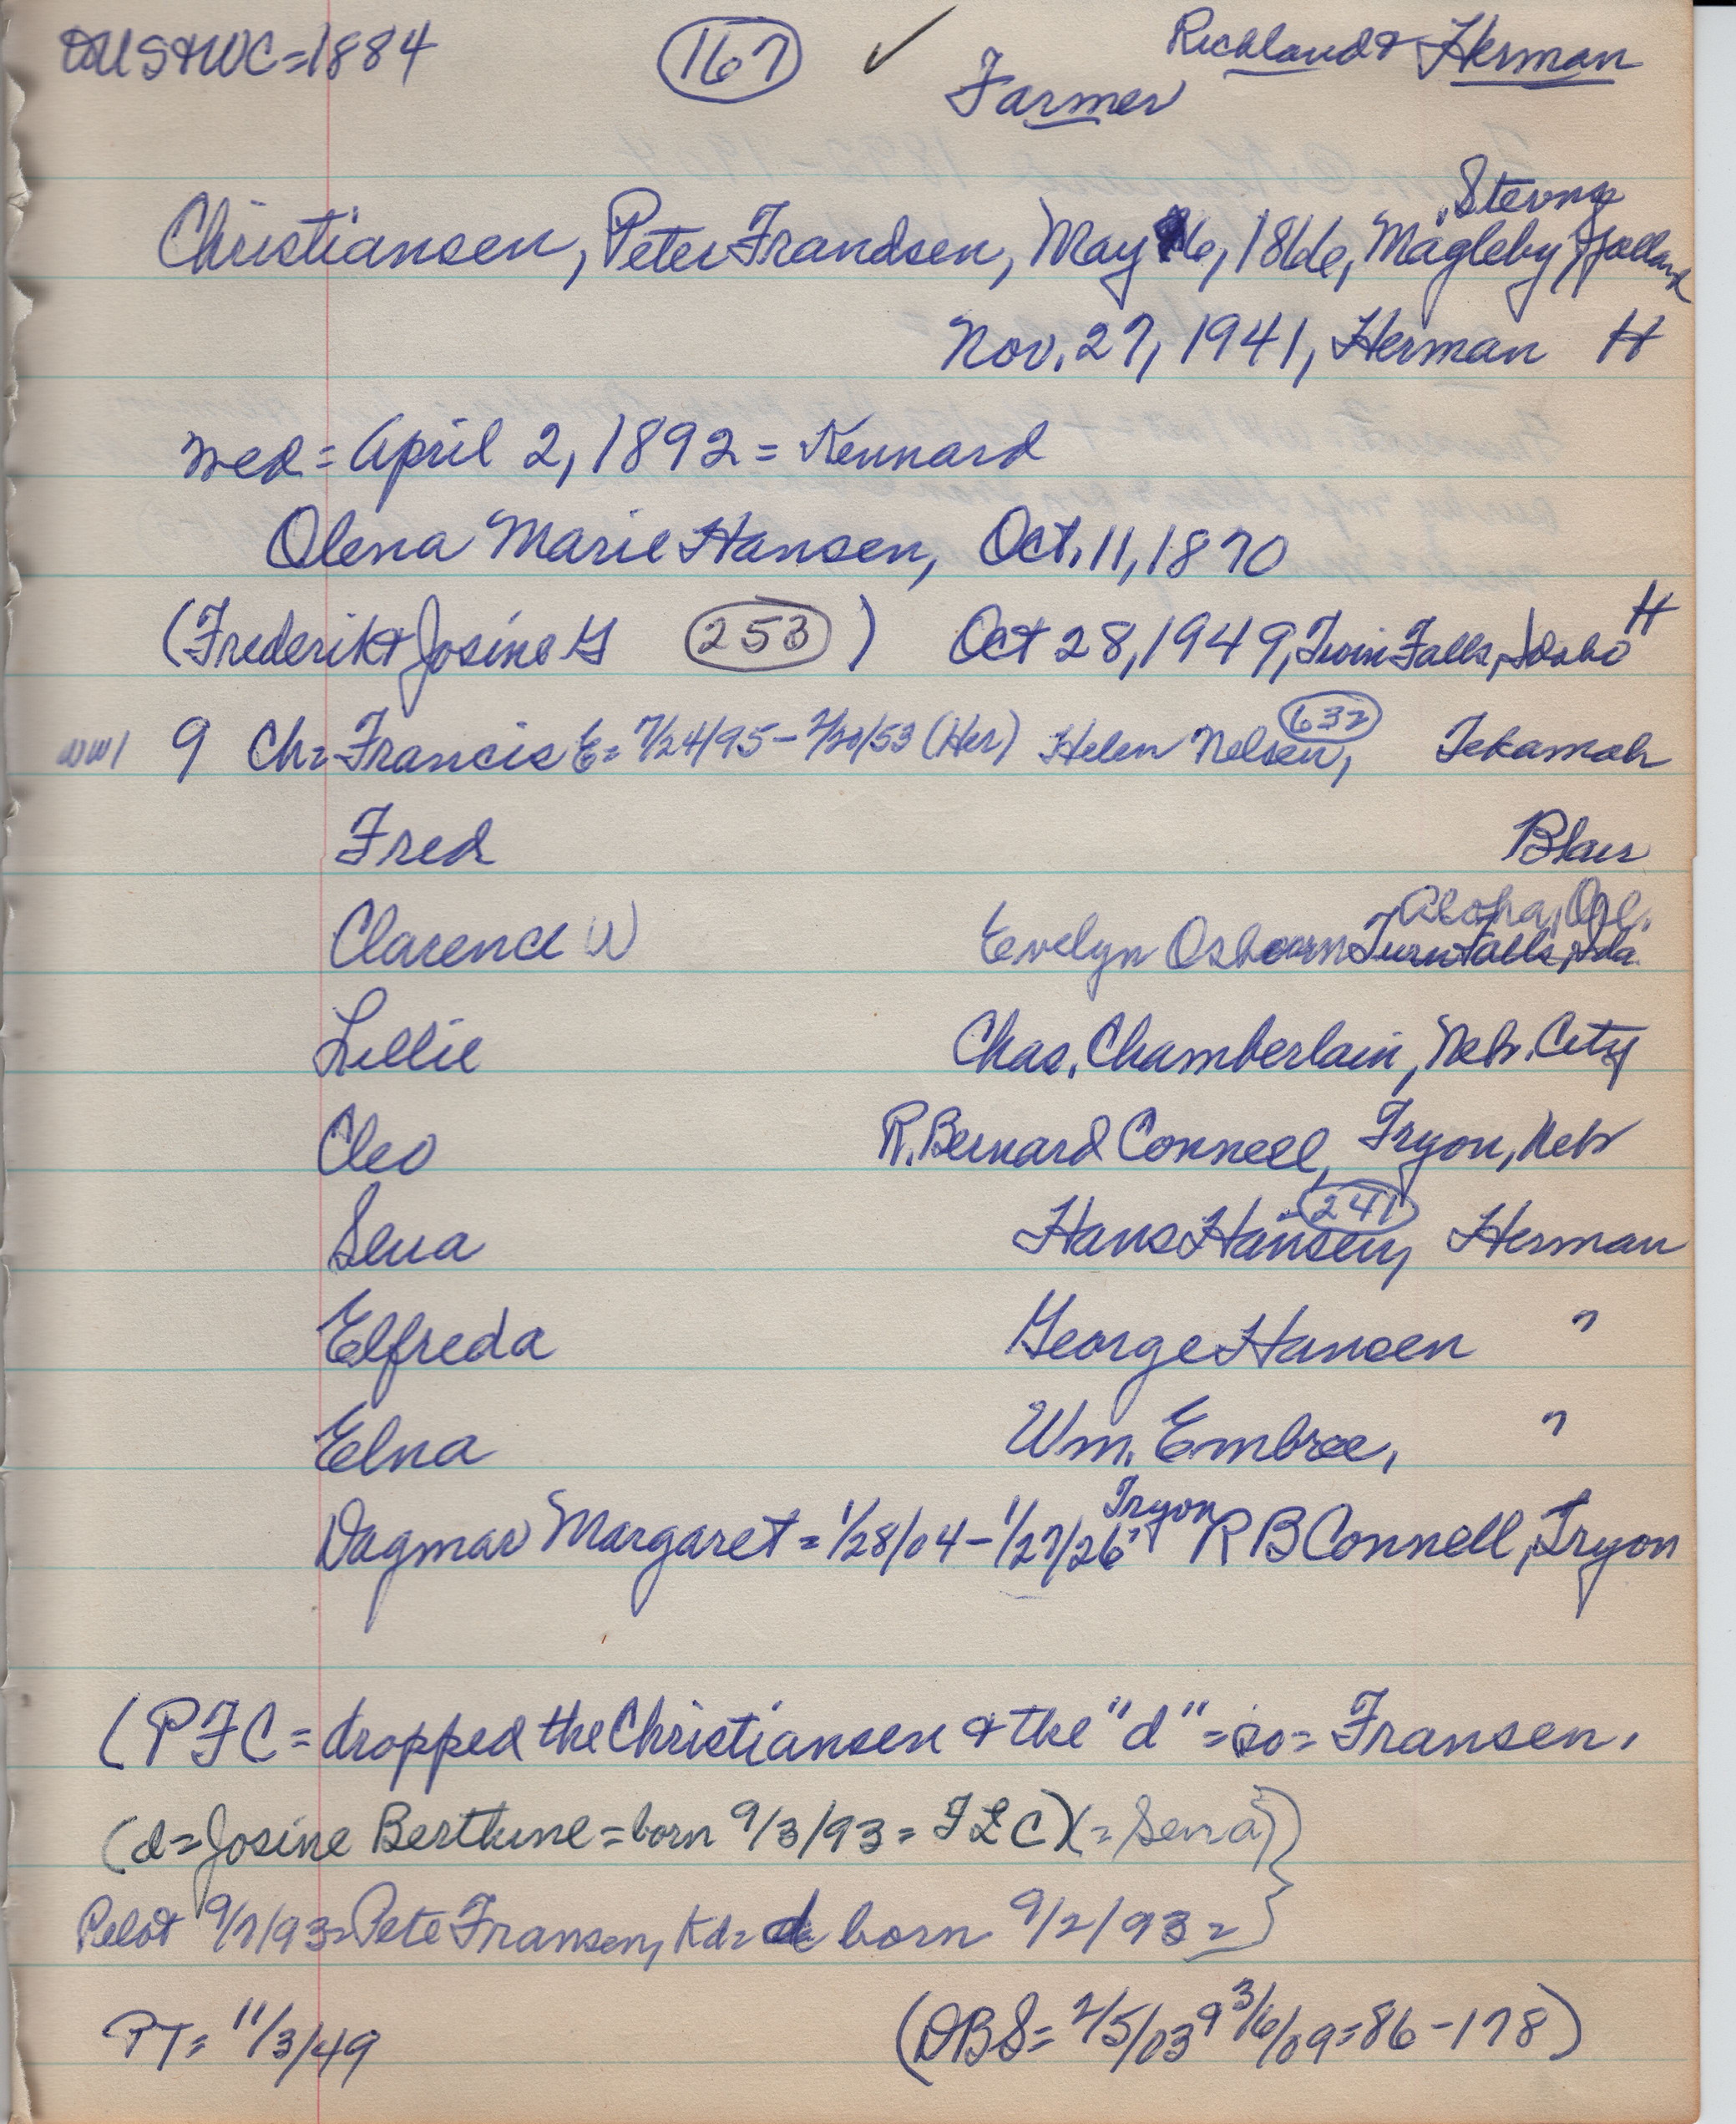 DUS&WC=1884 (167) ✓ Richland & Herman
Farmer
Stevns
Christiansen, Peter Frandsen, May 16, 1866, Magleby, Sjælland
Nov. 27, 1941, Herman H
med = April 2, 1892 = Kennard
Olena Marie Hansen, Oct. 11, 1870
(Frederik & Josine G (253) ) Oct 28, 1949, Twin Falls, Idaho H
WW1 9 Ch = Francis E = 7/24/95 - 7/20/53 (Her) Helen Nelsen, (632) Tekamah
Fred Blair
Aloha, Ore.
Clarence W Evelyn Osbourn Twin Falls, Ida.
Lillie Chas. Chamberlain, Neb. City
Cleo R. Bernard Connell, Tryon, Nebr
Sena Hans Hansen, (241) Herman
Elfreda George Hansen "
Elna Wm. Embree, "
Dagmar Margaret = 1/28/04 - 1/27/26 = Tryon R B Connell, Tryon
(PFC = dropped the Christiansen & the "d" = so = Fransen.
(d = Josine Berthine = born 9/3/93 = FLC) (= Sena)
Pilot 9/7/93 = Pete Fransen, Kd = d born 9/2/93 =
PT = 11/3/49 (DBS = 2/5/03 9 3/6/09 = 86 - 178)